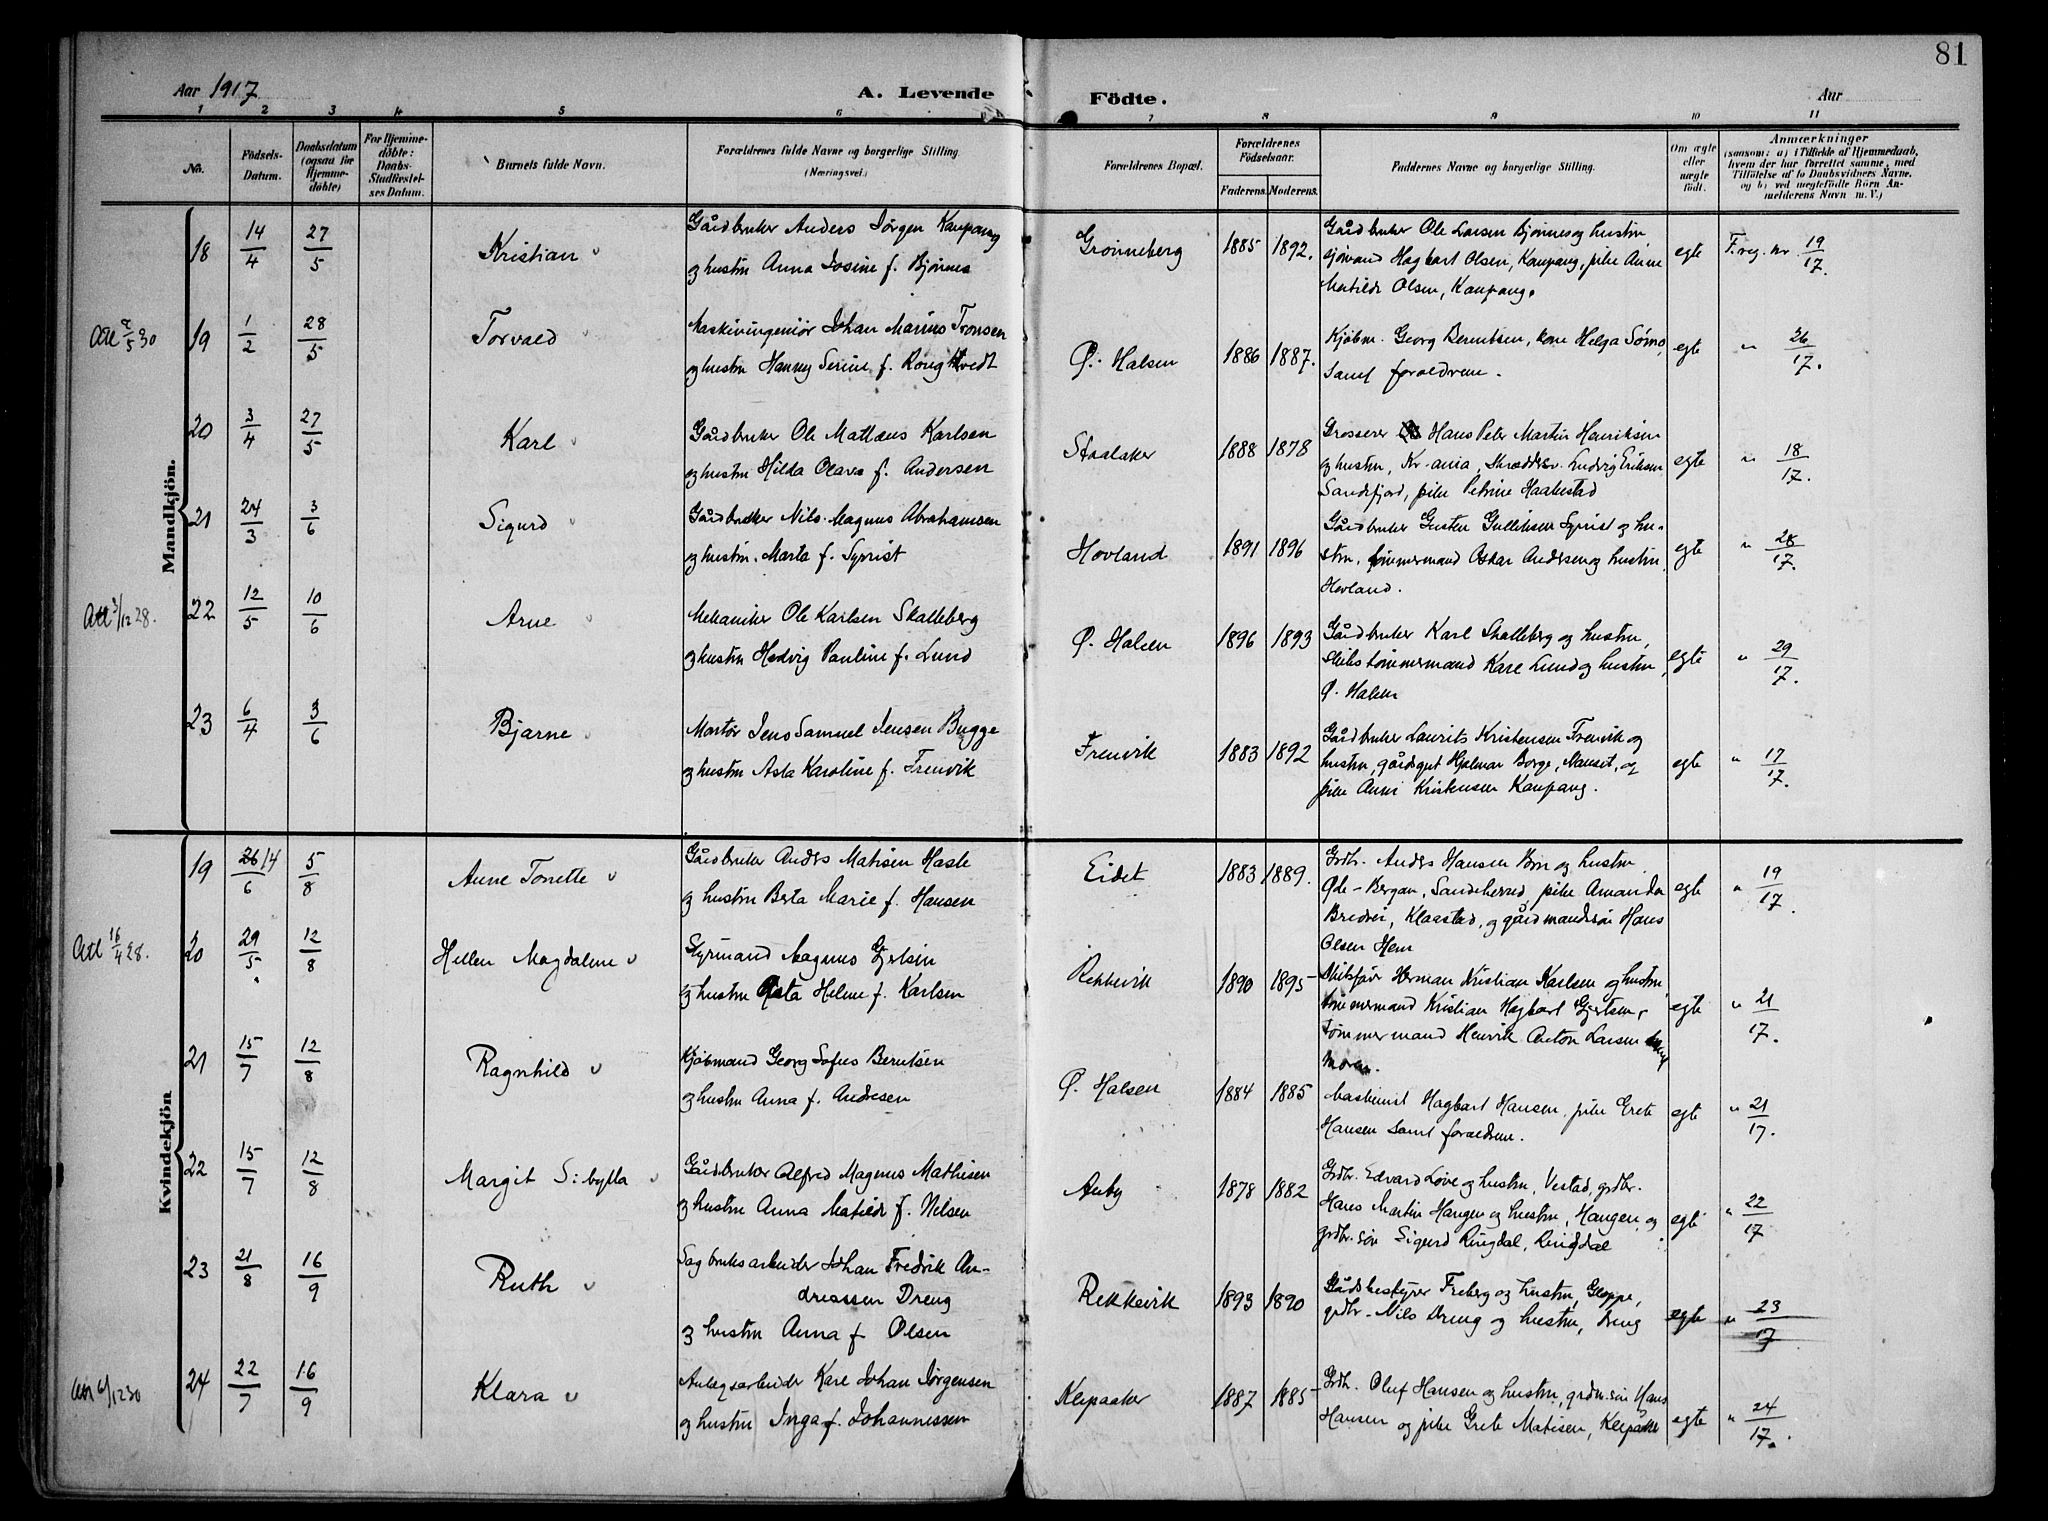 81
Aar 1917
A. Levende Födte.
Aar
1 2 3 4 5 6 7 8 9 10 11
No.
Födsels-Datum.
Daabsdatum (ogsaa for Hjemmedöbte)
For Hjemmedöbte: Daabs-Stadfæstelses Datum.
Barnets fulde Navn.
Forældrenes fulde Navne og borgerlige Stilling. (Næringsvei.)
Forældrenes Bopæl.
Forældrenes Födselsaar.
Faderens. Moderens.
Faddernes Navne og borgerlige Stilling.
Om ægte eller uægte födt.
Anmærkninger
(saasom: a) i Tilfælde af Hjemmedaab, hvem der har forrettet samme, med Tilföielse af to Daabsvidners Navne, og b) ved uægtefödte Börn Anmelderens Navn m. V.)
Mandkjön.
18 14/4 27/5 Kristian
Gårdbruker Anders Jørgen Kaupang
og hustru Anna Josine f. Bjønnes
Grønneberg 1885 1892.
Gårdbruker Ole Larsen Bjønnes og hustru,
Hagbart Olsen, Kaupang, pike Anne
Matilde Olsen, Kaupang.
egte F.reg. nr 19/17.
19 1/2 28/5 Torvald
Maskiningeniør Johan Marius Tronsen
og hustru Hanny Serine f. Ronghvedt
Ø. Halsen 1886 1887.
Kjøbm. Georg Berentsen, kone Helga
samt forældrene.
egte " 26/17.
20 3/4 27/5 Karl
Gårdbruker Ole Matæus Karlsen
og hustru Hilda Olava f. Andersen
Staalaker 1888 1878
Grosserer Hans Peter Martin Henriksen
og hustru, Kr-ania, Skræddersv. Ludvig Eriksen
Sandefjord, pike Petrine Haakestad
egte " 18/17.
21 24/3 3/6 Sigurd
Gårdbruker Nils Magnus Abrahamsen
og hustru Marta f. Syrrist
Hovland 1891 1896
Gårdbruker Gusten Gulliksen Syrist og hu-
stru, tømmermand Oskar Andersen og hustru,
Hovland.
egte " 28/17.
22 12/5 10/6 Arne
Mekaniker Ole Karlsen Skalleberg
og hustru Hedvig Pauline f. Lund
Ø. Halsen 1896 1893
Gårdbruker Karl Skalleberg og hustru,
skibstømmermand Karl Lund og hustru,
Ø. Halsen
egte " 29/17.
23 6/4 3/6 Bjarne
Martør Jens Samuel Jensen Bugge
og hustru Asta Karoline f. Freuvik
Freuvik 1883 1892
Gårdbruker Laurits Kristensen Freuvik og
hustru, gårdsgut Hjalmar Borge, Nanset, og
pike Anni Kristensen Kaupang.
egte " 17/17.
Kvindekjön
19 26 14/6 5/8 Anne Tonette
Gårdbruker Anders Matisen Hasle
og hustru Berta Marie f. Hansen
Eidet 1883 1889.
Grdbr. Anders Hansen Bøn og hustru
Øde-Bergan, Sandeherred, pike Amanda
Bredvei, Klaastad, og gårdmandssøn Hans
Olsen Hem
egte " 19/17.
20 29/5. 12/8 Hellen Magdalene
Styrmand Magnus Gjertsen
og hustru Asta Helene f. Karlsen
Rekkevik 1890 1895
Skibsfør Herman Kristian Karlsen og hustru,
tømmermand Kristian Hagbart Gjertsen,
tømmermand Henrik Anton Larsen samt
moren.
egte " 21/17.
21 15/7 12/8 Ragnhild
Kjøbmand Georg Sofus Berntsen
og hustru Anna f. Andresen
Ø. Halsen 1884 1885
Maskinist Hagbart Hansen, pike Grete
Hansen samt forældrene.
egte " 21/17.
22 15/7 12/8 Margit Sibylla
Gårdbruker Alfred Magnus Mathisen
og hustru Anna Matilde f. Nilsen
Auby 1878 1882
Grdbr. Edvard Løve og hustru, Vestad, grdbr.
Hans Martin Haugen og hustru, Haugen, og
grdbr.søn Sigurd Ringdal, Ringdal
egte " 22/17
23 21/8 16/9 Ruth
Sagbruksarbeider Johan Fredrik An-
dreassen Dreng
og hustru Anna f. Olsen
Rekkevik 1893 1890
Gårdsbestyrer Freberg og hustru, Gloppe,
grdbr. Nils Dreng og hustru, Dreng
egte " 23/17
24 22/7 16/9 Klara
Anlegsarbeider Karl Johan Jørgensen
og hustru Inga f. Johannessen
Klepaaker 1887 1885
Grdbr. Oluf Hansen og hustru, grdm.søn Hans
Hansen og pike Grete Matisen, Klepaker
egte " 24/17.
Att 7/5 30
Att 3/12 28.
Att 16/4 28.
Att 6/12 30